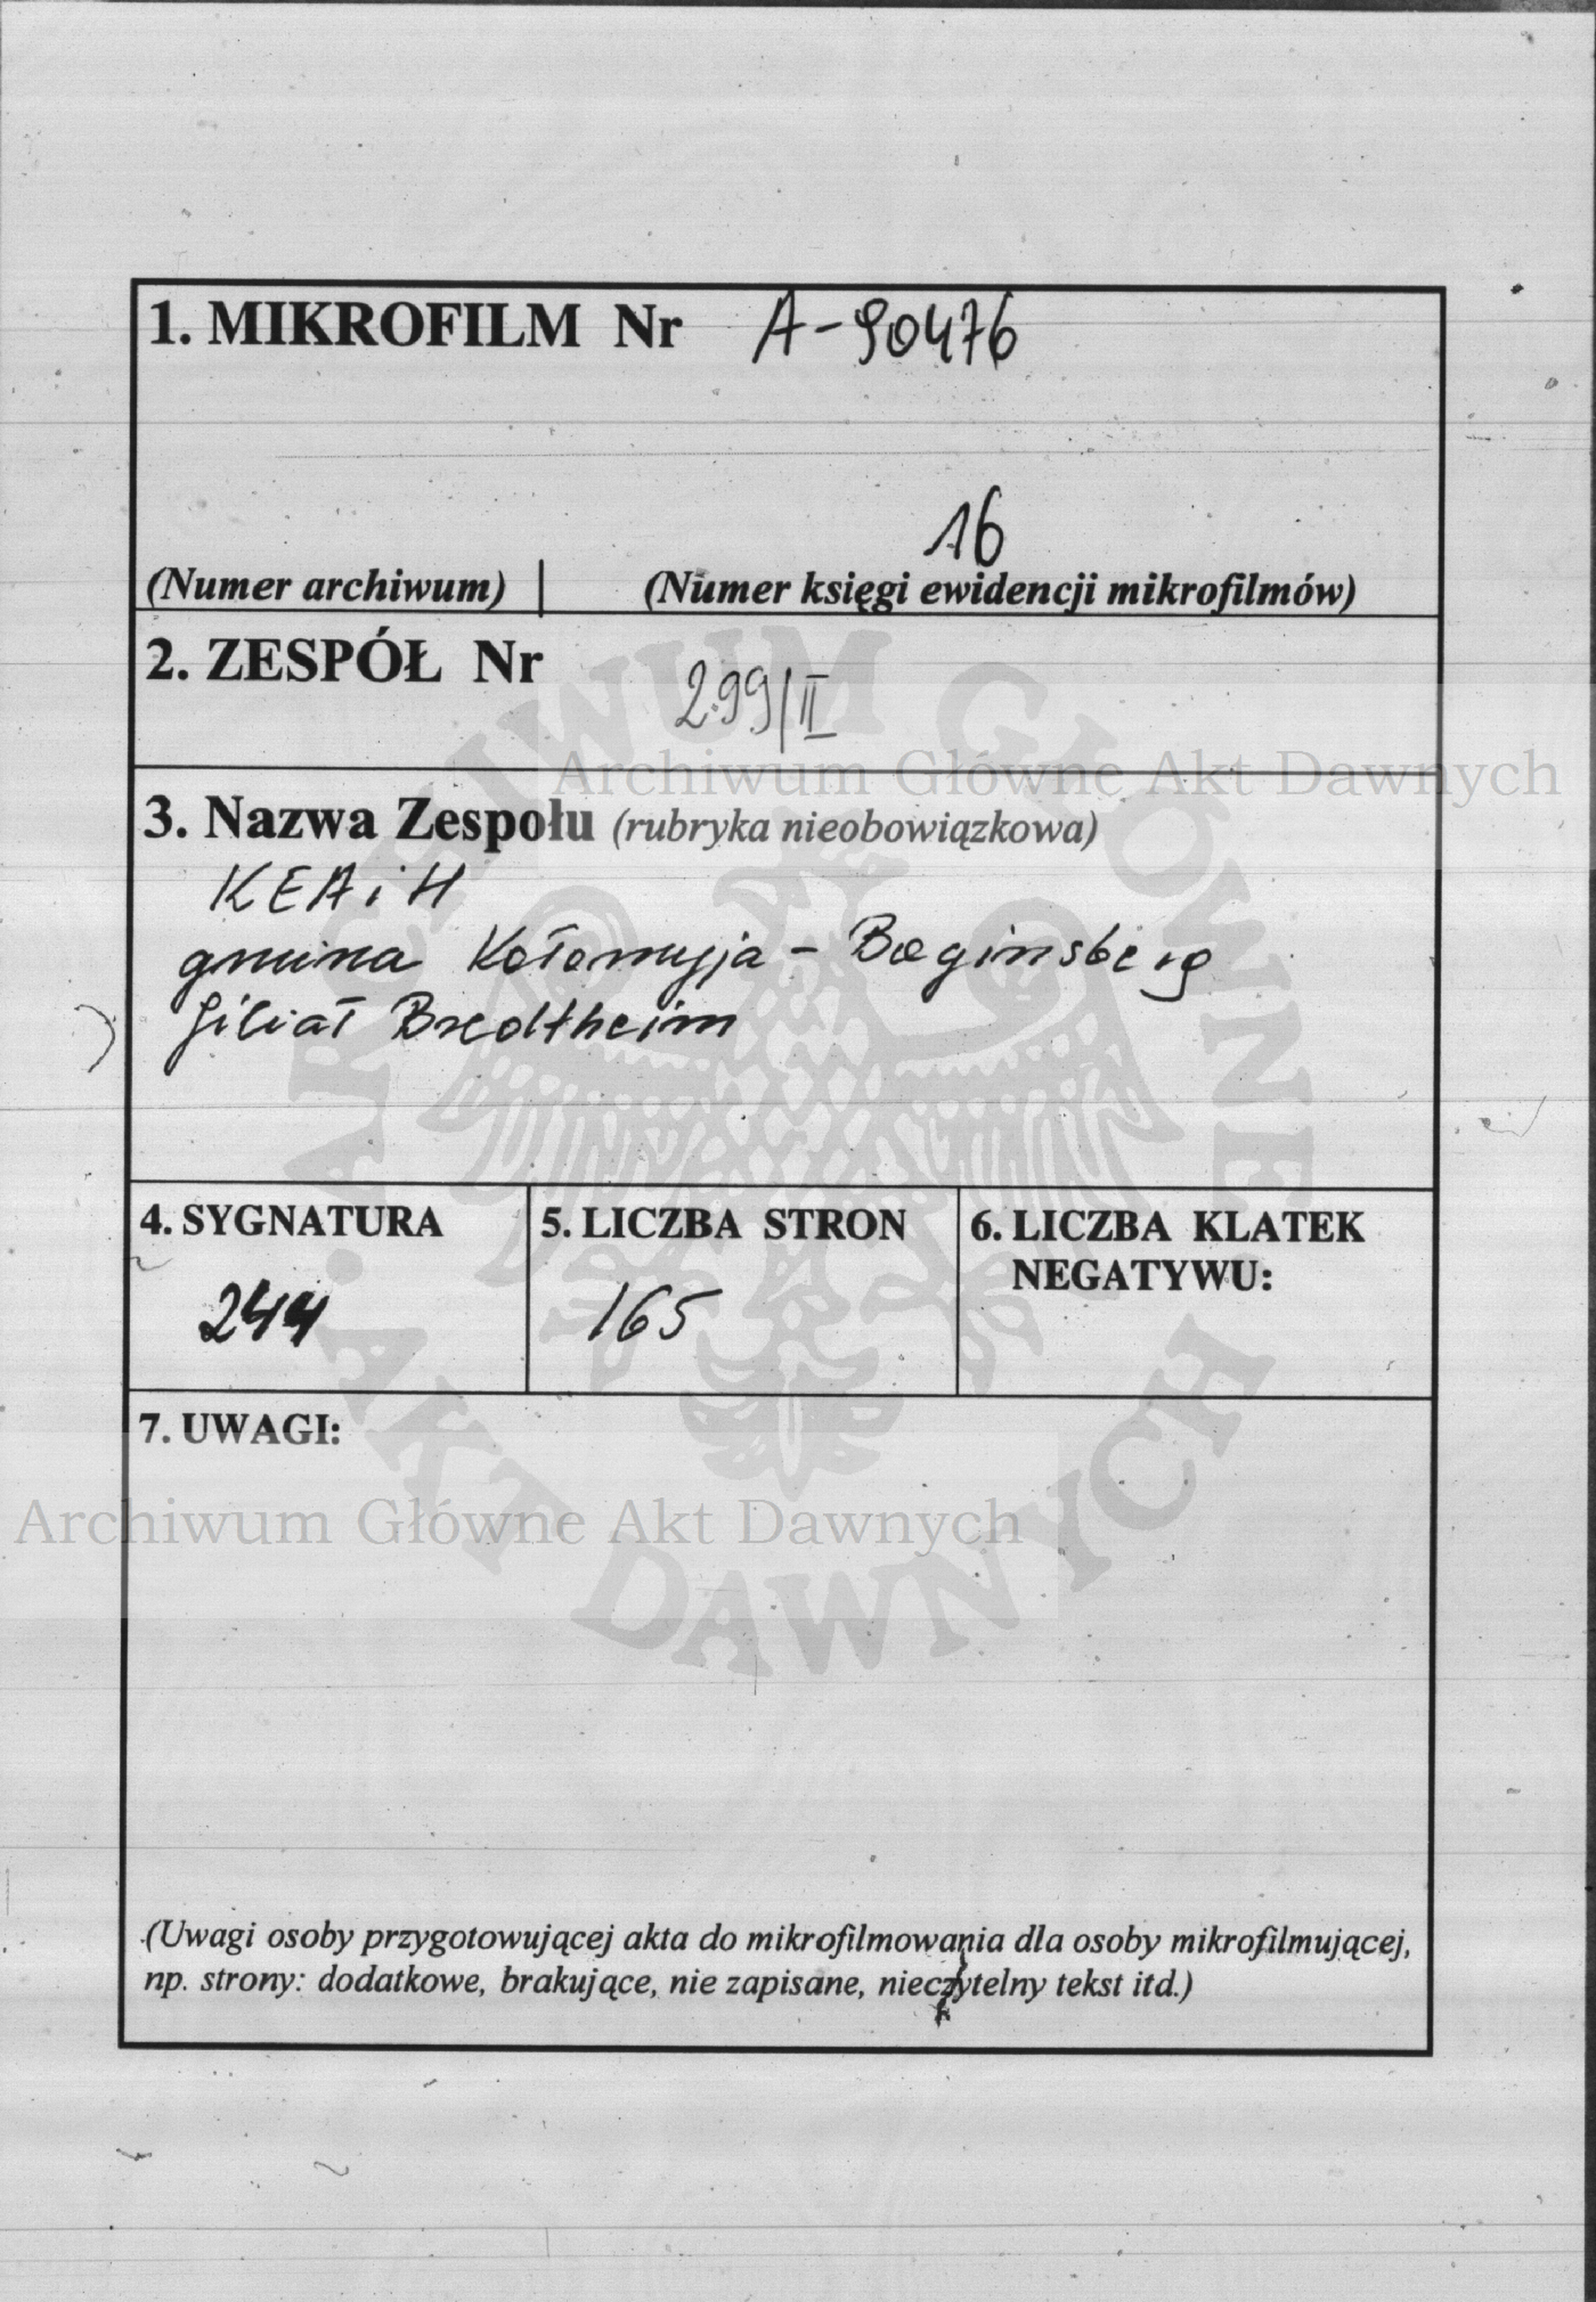 1. MIKROFILM Nr A-90476
16
(Numer archiwum) | (Numer księgi ewidencji mikrofilmów)
2. ZESPÓŁ Nr
299/II
Archiwum Główne Akt Dawnych
3. Nazwa Zespołu (rubryka nieobowiązkowa)
KEAiH
gmina Kołomyja - Baginsberg
filiał Bredtheim
4. SYGNATURA
244
5. LICZBA STRON
165
6. LICZBA KLATEK
NEGATYWU:
7. UWAGI:
Archiwum Główne Akt Dawnych
(Uwagi osoby przygotowującej akta do mikrofilmowania dla osoby mikrofilmującej,
np. strony: dodatkowe, brakujące, nie zapisane, nieczytelny tekst itd.)
ARCHIWUM GŁÓWNE
AKT DAWNYCH